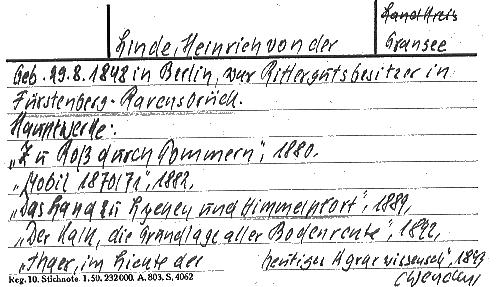 Linde, Heinrich von der
Landkreis
Gransee
Geb. 29.8.1848 in Berlin, war Rittergutsbesitzer in
Fürstenberg-Ravensbrück.
Hauptwerke:
„Zu Roß durch Pommern", 1880,
„Mobil 1870/71", 1882,
„Das Land zu Lychen und Himmelpfort", 1889,
„Der Kalk, die Grundlage aller Bodenrente", 1892,
„Thaer, im Lichte der heutigen Agrarwissensch", 1893
Reg. 10. Stichnote. 1. 50. 232000. A. 803. S. 4062